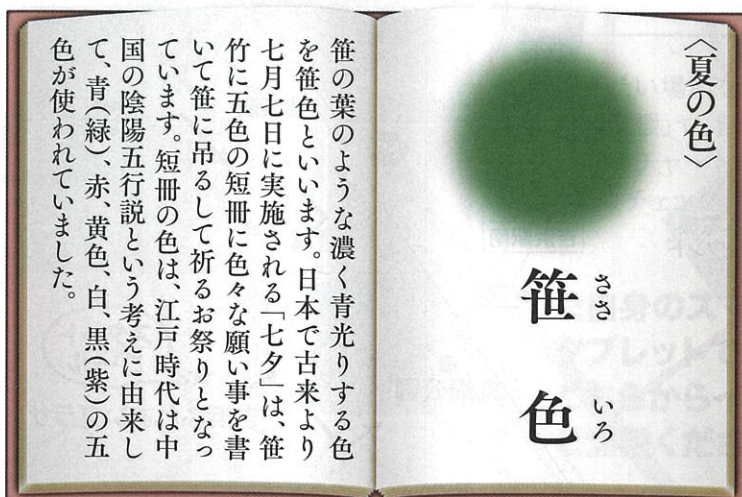 〈夏の色〉
笹色
ささいろ
笹の葉のような濃く青光りする色
を笹色といいます。日本で古来より
七月七日に実施される「七夕」は、笹
竹に五色の短冊に色々な願い事を書
いて笹に吊るして祈るお祭りとなっ
ています。短冊の色は、江戸時代は中
国の陰陽五行説という考えに由来し
て、青(緑)、赤、黄色、白、黒(紫)の五
色が使われていました。